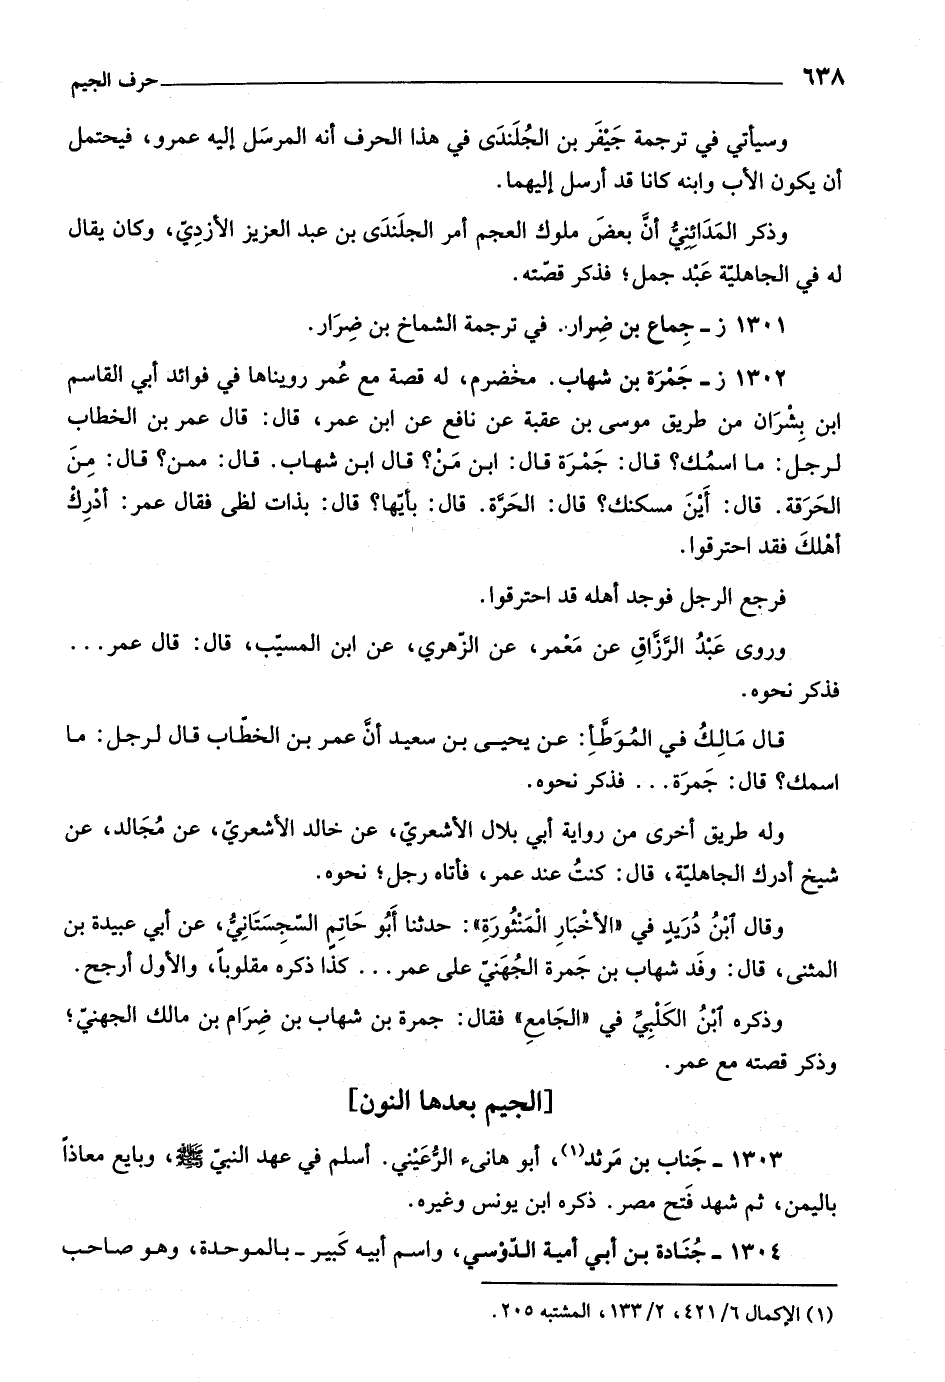 ٦٣٨ حرف الجيم
وسيأتي في ترجمة جَيْفَر بن الجُلَندَى في هذا الحرف أنه المرسَل إليه عمرو، فيحتمل
أن يكون الأب وابنه كانا قد أرسل إليهما.
وذكر المَدَائِنِيُّ أنَّ بعضَ ملوك العجم أمر الجلَندَى بن عبد العزيز الأزدِيّ، وكان يقال
له في الجاهليّة عَبْد جمل؛ فذكر قصّته.
١٣٠١ ز ـ جِماع بن ضِرار. في ترجمة الشماخ بن ضِرَار.
١٣٠٢ ز ـ جَمْرَة بن شهاب. مخضرم، له قصة مع عُمر رويناها في فوائد أبي القاسم
ابن بِشْرَان من طريق موسى بن عقبة عن نافع عن ابن عمر، قال: قال عمر بن الخطاب
لرجل: ما اسمُك؟ قال: جَمْرَة قال: ابن مَنْ؟ قال ابن شهاب. قال: ممن؟ قال: مِنَ
الحَرَقة. قال: أَيْنَ مسكنك؟ قال: الحَرَّة. قال: بأيّها؟ قال: بذات لظى فقال عمر: أدْرِكْ
أهْلكَ فقد احترقوا.
فرجع الرجل فوجد أهله قد احترقوا.
وروى عَبْدُ الرَّزَّاقِ عن مَعْمر، عن الزّهري، عن ابن المسيّب، قال: قال عمر...
فذكر نحوه.
قال مَالِكُ في المُوَطَّأِ: عن يحيى بن سعيد أنَّ عمر بن الخطّاب قال لرجل: ما
اسمك؟ قال: جَمرَة... فذكر نحوه.
وله طريق أخرى من رواية أبي بلال الأشعريّ، عن خالد الأشعريّ، عن مُجَالد، عن
شيخ أدرك الجاهليّة، قال: كنتُ عند عمر، فأتاه رجل؛ نحوه.
وقال ٱبْنُ دُرَيَدٍ في «الأخْبَارِ الْمَنْثُورَةِ»: حدثنا أَبُو حَاتِمِ السّجِسَتَانِيُّ، عن أبي عبيدة بن
المثنى، قال: وفَد شهاب بن جَمرة الجُهَنيّ على عمر... كذا ذكره مقلوباً، والأول أرجح.
وذكره ٱبْنُ الكَلْبِيِّ في «الجَامعِ» فقال: جمرة بن شهاب بن ضِرَام بن مالك الجهنيّ؛
وذكر قصته مع عمر.
[الجيم بعدها النون]
١٣٠٣ ـ جَناب بن مَرثد(١)، أبو هانىء الرُّعَيْني. أسلم في عهد النبيّ ﷺ، وبايع معاذاً
باليمن، ثم شهد فَتح مصر. ذكره ابن يونس وغيره.
١٣٠٤ ـ جُنَادة بن أبي أمية الدّوْسي، واسم أبيه كَبير ـ بالموحدة، وهو صاحب
(١) الإكمال ٦/ ٤٢١، ٢/ ١٣٣، المشتبه ٢٠٥.